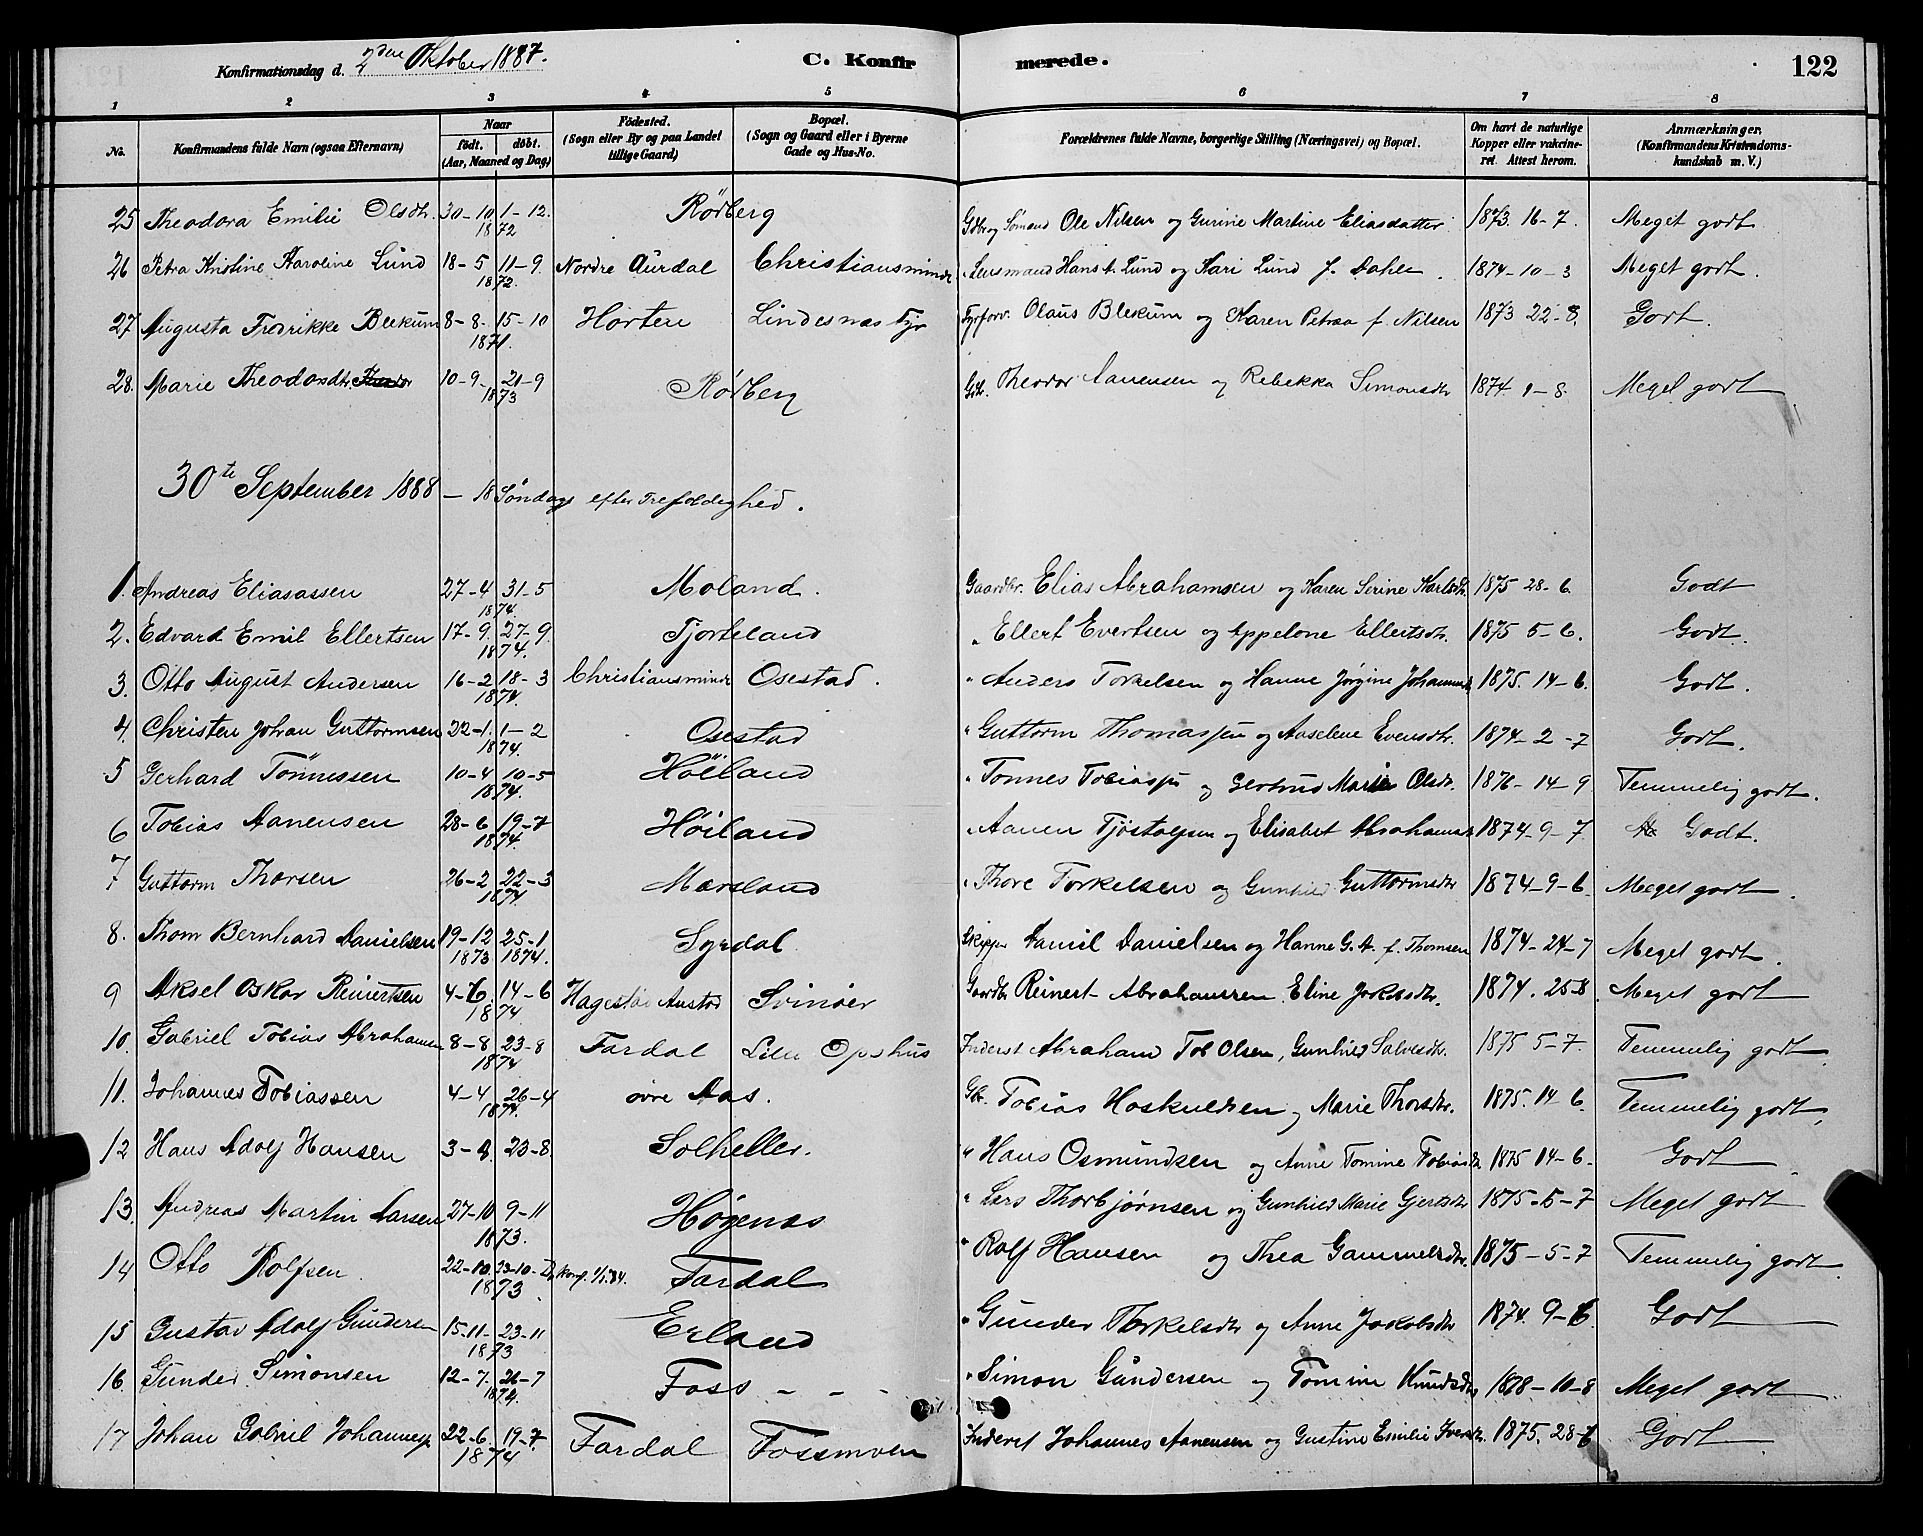 Konfirmationsdag d. 2den Oktober 1887. C. Konfirmerede. 122
1 2 3 4 5 6 7 8
No. Konfirmandens fulde Navn (ogsaa Efternavn) Naar født. døbt. (Aar, Maaned og Dag) Fødested. (Sogn eller By og paa Landet tillige Gaard) Bopæl. (Sogn og Gaard eller i Byerne Gade og Hus-No. Forældrenes fulde Navne, borgerlige Stilling (Næringsvei) og Bopæl. Om havt de naturlige Kopper eller vakcineret. Attest herom. Anmærkninger. (Konfirmandens Kristendomskundskab m. V.)
25 Theodora Emilie Olsdtr. 30-10 1-12. 1872 Rødberg Gdbr og Sømand Ole Nilsen og Gurine Martine Eliasdatter 1873. 16-7. Meget godt
26 Petra Kristine Karoline Lund 18-5 11-9. 1872. Nordre Aurdal Christiansminde Lensmand Hans t. Lund og Kari Lund f. Dahle. 1874-10-3 Meget godt.
27 Augusta Fredrikke Blekum 8-8. 15-10 1871. Horten Lindesnæs Fyr Fyrforv. Olaus Blekum og Karen Petrea f. Nilsen 1873 22-8. Godt.
28. Marie Theodorsdtr. 10-9. 21-9 1873 Rødberg Gbr. Theodor Aanensen og Rebekka Simonsdtr 1874. 9-8. Meget godt
30te September 1888 - 18 Søndag efter Trefoldighed.
1. Andreas Eliasassen 27-4 31-5 1874. Moland. Gaardbr. Elias Abrahamsen og Karen Serine Karlsdtr. 1875 28-6. Godt
2. Edvard Emil Ellertsen 17-9. 27-9. 1874. Tjorteland " Ellert Evertsen og Appelone Ellertsdtr. 1875 5-6. Godt.
3. Otto August Andersen 16-2 18-3 1874. Christiansminde Osestad. " Anders Torkelsen og Hanne Jørgine Johannsdtr 1875. 14-6. Godt.
4. Christen Johan Guttormsen 22-1. 1-2 1874. Osestad " Guttorm Thomassen og Aaselene Evensdtr. 1874-2-7 Godt.
5 Gerhard Tønnessen 10-4 10-5 1874. Høiland " Tønnes Tobiassen og Gertrud Marie Olsdtr. 1876-14-9 Temmelig godt.
6 Tobias Aanensen 28-6 19-7 1874. Høiland " Aanen Tjøstolsen og Elisabet Abrahamsdtr 1874-9-7 Godt.
7. Guttorm Thorsen 26-2 22-3 1874. Marsland " Thore Torkelsen og Gunhild Guttormsdtr 1874-9-6 Meget godt.
8. Thom Bernhard Danielsen 19-12 1873 25-1 1874. Syrdal Skipper Daniel Danielsen og Hanne G. A. f. Thomsen 1874-24-7 Meget godt.
9 Aksel Oskar Reinertsen 4-6. 14-6 1874 Hagestad Austad Svinøer Gaardbr Reinert Abrahamsen. Eline Jakobsdtr. 1874. 25-8. Meget godt
10. Gabriel Tobias Abrahamsen 8-8 23-8 1874 Fardal Lille Opshus Inderst Abraham Tob Olsen, Gunhild Salvesdtr. 1875 5-7. Temmelig godt.
11. Johannes Tobiassen 4-4 26-4 1874. øvre Aas. Gbr. Tobias Hoskuldsen og Marie Thorsdtr. 1875. 14-6. Temmelig godt.
12 Hans Adolf Hansen 3-8. 23-8. Solheller. " Hans Osmundsen og Anne Tomine Tobiasdtr. 1875 14-6. Godt
13. Andreas Martin Larsen 27-10 9-11 1873. Høgenes " Lars Thorbjørnsen og Gunhild Marie Gjertsdtr 1875-5-7 Meget godt
14 Otto Rolfsen. 22-10 23-10 1873 Fardal " Rolf Hansen og Thea Gammelsdtr. 1875-5-7 Temmelig godt.
15 Gustav Adolf Gundersen 15-11- 23-11 1873 Erland " Gunder Torkelsdtr og Anne Jakobsdtr 1874. 9-6. Godt
16. Gunder Simonsen 12-7. 26-7 1874. Foss - - - " Simon Gundersen og Tomine Knudsdtr 1878-10-8 Meget godt
17 Johan Gabriel Johannessen 22-6. 19-7. 1874 Fardal Fossmoen Inderst Johannes Aanensen og Gustine Emilie Iversdtr. 1875. 28-6 Godt